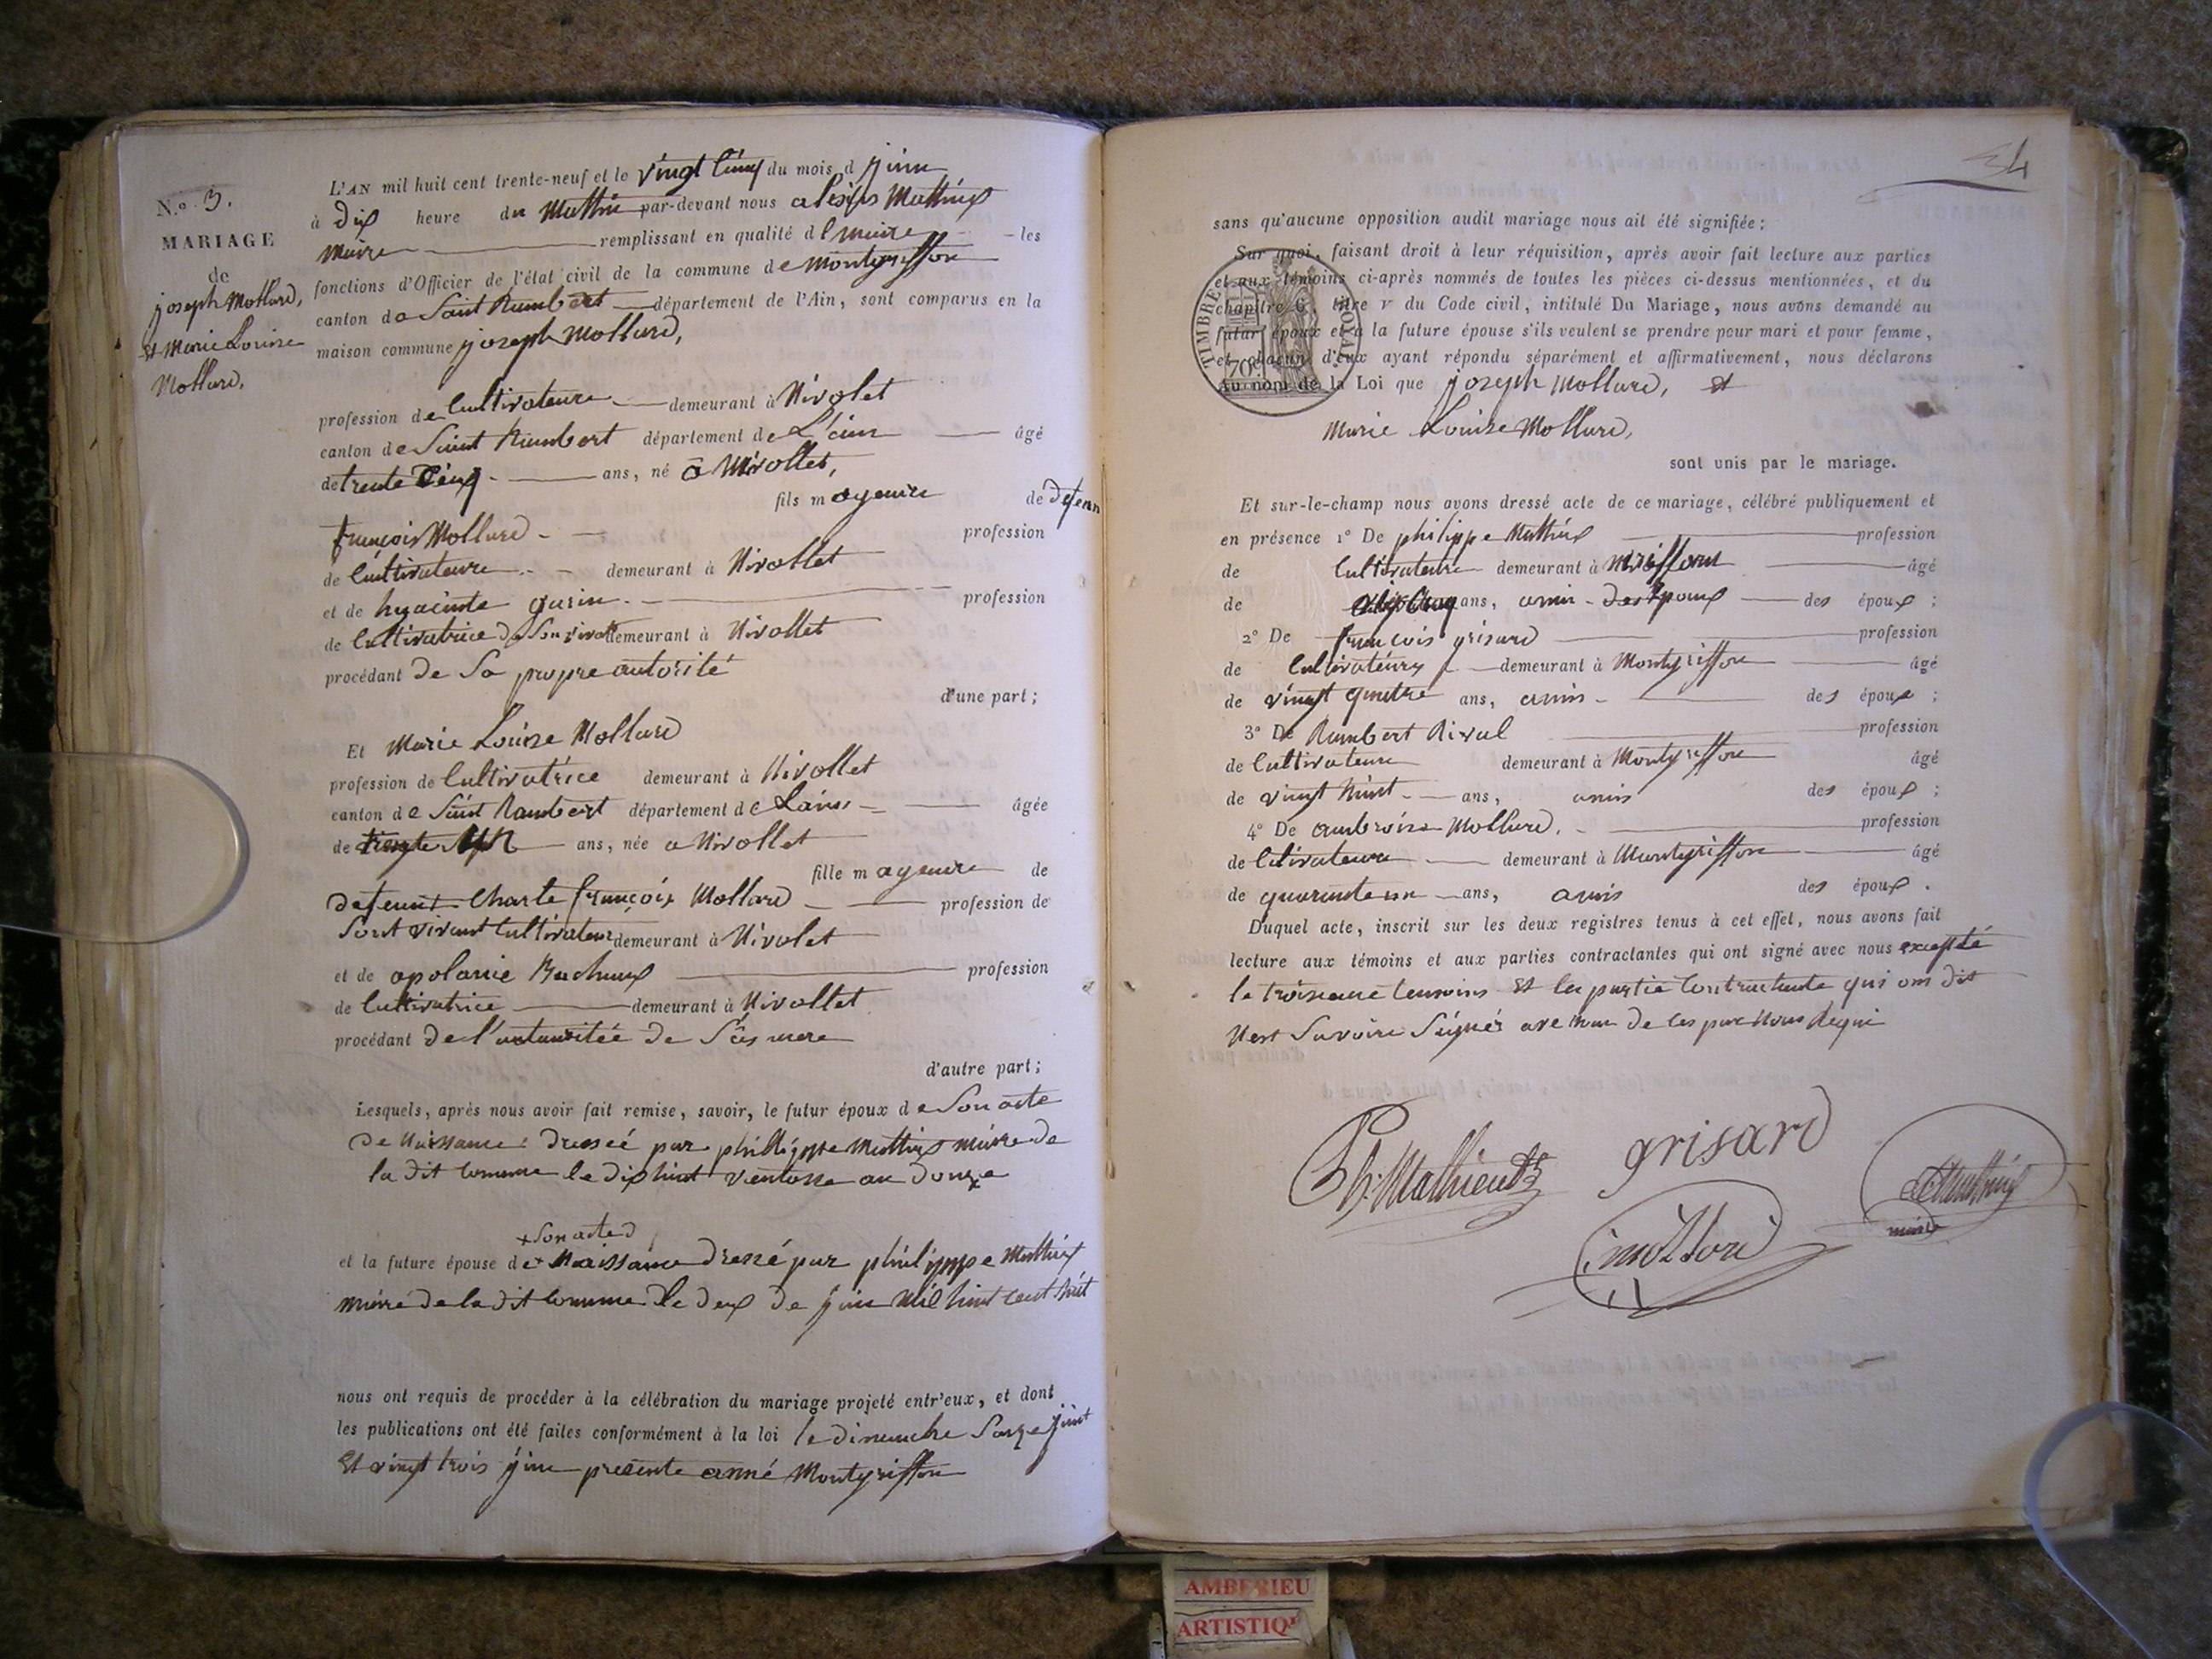 N.o 3.
MARIAGE
de
joseph Mollard,
et Marie Louise
Mollard.
L'AN mil huit cent trente-neuf et le vingt cinq du mois d juin
à dix heure du Mathin par-devant nous alexis Mathieux
Maire remplissant en qualité de Maire les
fonctions d'Officier de l'état civil de la commune de Montgriffon
canton de Saint Rambert département de l'Ain, sont comparus en la
maison commune joseph Mollard,
profession de Cultivateure demeurant à Nivolet
canton de Saint Rambert département de L'ain âgé
de trente cinq ans, né à Nivollet,
fils mageure de defenn
françois Mollard profession
de Cultivateure demeurant à Nivollet
et de hyacinte gurin profession
de Cultivatrice de Son vivant demeurant à Nivollet
procédant de Sa propre autorité
d'une part;
Et Marie Louise Mollard
profession de Cultivatrice demeurant à Nivollet
canton de Saint Rambert département de Lain âgée
de ans, née a Nivollet
fille mageure de
defeunt Charle françois Mollard profession de
Sont vivant Cultivateur demeurant à Nivolet
et de apolanie profession
de Cultivatrice demeurant à Nivollet
procédant de l'autauritée de Sas mere
d'autre part;
Lesquels, après nous avoir fait remise, savoir, le futur époux de Son acte
De Naissance dresseé par philligppe Mathieux maire de
la dit commune le dix huit ventosse an douze
+ Son acte d
et la future épouse de + Naissance dressé par philigppe Mathieux
maire de la dit commune le deux de juin mil huit cent huit
nous ont requis de procéder à la célébration du mariage projeté entr'eux, et dont
les publications ont été faites conformément à la loi le dimanche Saize juint
Et vingt trois juin presente anné Montgriffon
34
sans qu'aucune opposition audit mariage nous ait été signifiée;
Sur quoi, faisant droit à leur réquisition, après avoir fait lecture aux parties
et aux témoins ci-après nommés de toutes les pièces ci-dessus mentionnées, et du
chapitre 6, titre v du Code civil, intitulé Du Mariage, nous avons demandé au
futur époux et à la future épouse s'ils veulent se prendre pour mari et pour femme,
et chacun d'eux ayant répondu séparément et affirmativement, nous déclarons
au nom de la Loi que joseph Mollard, et
TIMBRE ROYAL
70c
Marie Louise Mollard,
sont unis par le mariage.
Et sur-le-champ nous avons dressé acte de ce mariage, célébré publiquement et
en présence 1° De philippe Mathieux profession
de Cultivateure demeurant à âgé
de ans, amis des époux des époux;
2° De françois grisard profession
de Cultivateure demeurant à Montgriffon âgé
de vingt quatre ans, amis des époux;
3° De Rambert Rival profession
de Cultivateure demeurant à Montgriffon âgé
de vingt huit ans, amis des époux;
4° De ambroise Mollard profession
de Cutivateure demeurant à Montgriffon âgé
de quarante un ans, amis des époux.
Duquel acte, inscrit sur les deux registres tenus à cet effet, nous avons fait
lecture aux témoins et aux parties contractantes qui ont signé avec nous excepté
le troisieme temoins et les partie Contractante qui om dit
Nest Savoire Signér ave nous de ces par Nous Requi
Ph. Mathieux
grisard
mollard
maire
AMBERIEU
ARTISTIQU